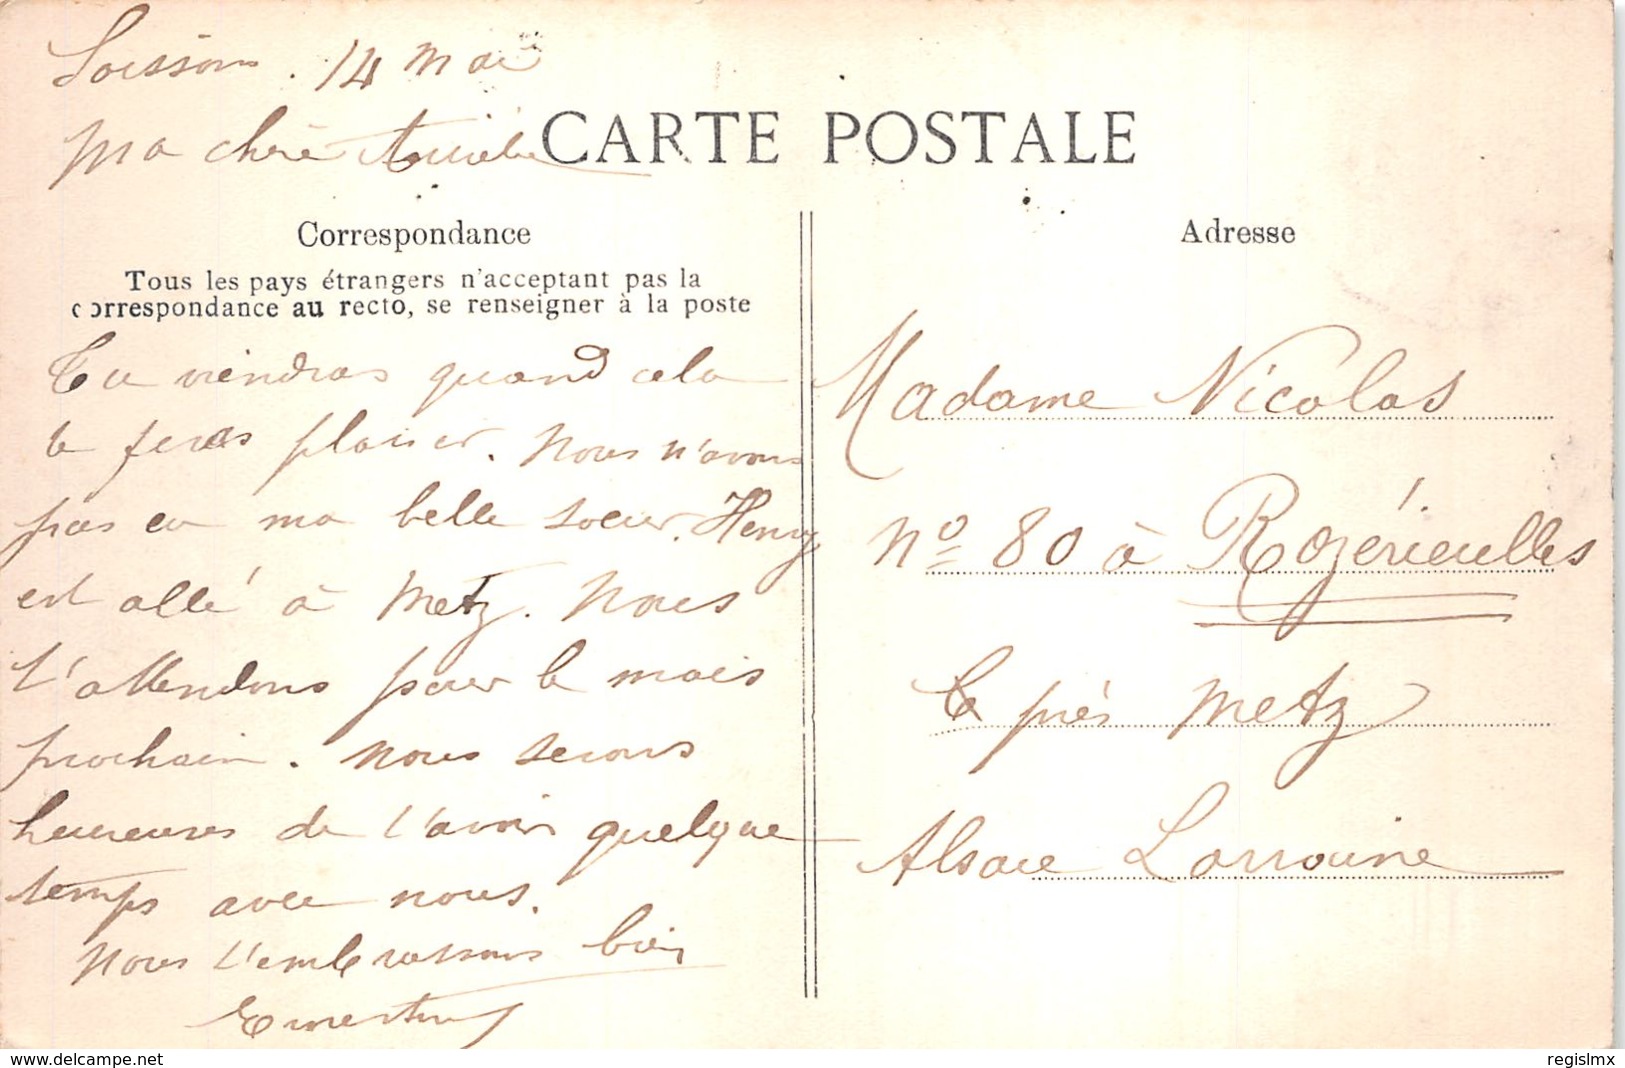 Soissons. 14 Mai
Ma chère Aurélie
CARTE POSTALE
Correspondance
Tous les pays étrangers n'acceptant pas la
correspondance au recto, se renseigner à la poste
Tu viendras quand cela
te feras plaisir. Nous n'avons
pas eu ma belle soeur. Henry
est allé à Metz. Nous
t'attendons pour le mois
prochain. Nous serons
heureuses de t'avoir quelque
temps avec nous.
Nous t'embrassons bien
Ernestine
Adresse
Madame Nicolas
No 80 à Rozérieulles
près Metz
Alsace Lorraine
www.delcampe.net
regislmx